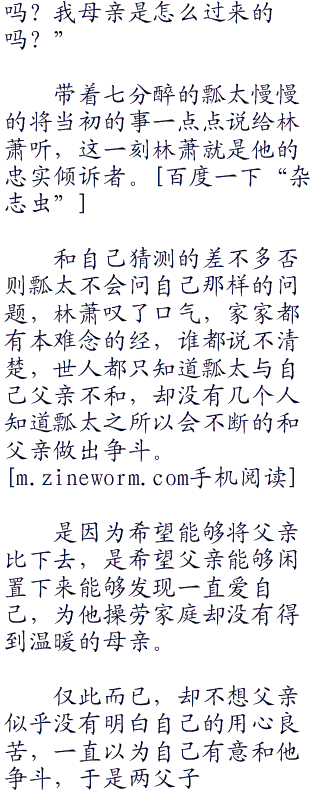 吗？我母亲是怎么过来的
吗？”
带着七分醉的瓢太慢慢
的将当初的事一点点说给林
萧听，这一刻林萧就是他的
忠实倾诉者。[百度一下“杂
志虫”]
和自己猜测的差不多否
则瓢太不会问自己那样的问
题，林萧叹了口气，家家都
有本难念的经，谁都说不清
楚，世人都只知道瓢太与自
己父亲不和，却没有几个人
知道瓢太之所以会不断的和
父亲做出争斗。
[m.zineworm.com手机阅读]
是因为希望能够将父亲
比下去，是希望父亲能够闲
置下来能够发现一直爱自
己，为他操劳家庭却没有得
到温暖的母亲。
仅此而已，却不想父亲
似乎没有明白自己的用心良
苦，一直以为自己有意和他
争斗，于是两父子